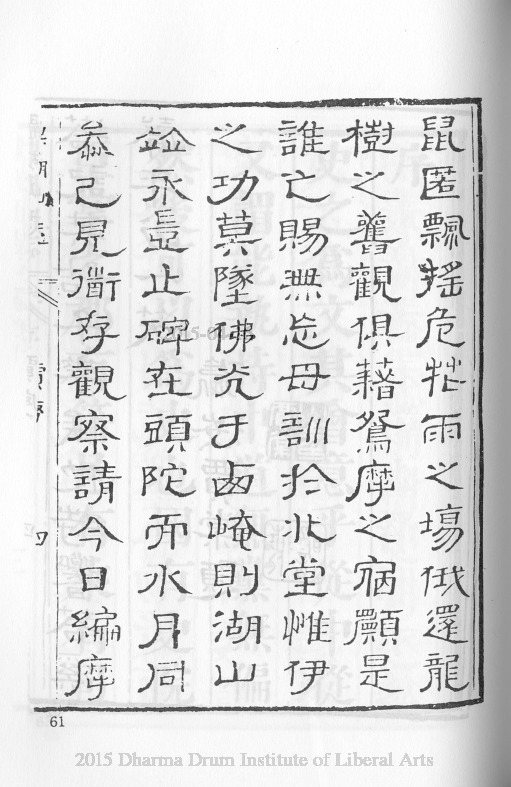 鼠匿飄搖危牝雨之塲俄還龍
樹之舊觀俱藉鴛摩之宿願是
誰亡賜無忘母訓於北堂惟伊
之功莫墜佛光于卥崦則湖山
竝永豈止碑在頭陀而水月同
叅己見衜存觀察請今日編摩
四
61
2015 Dharma Drum Institute of Liberal Arts